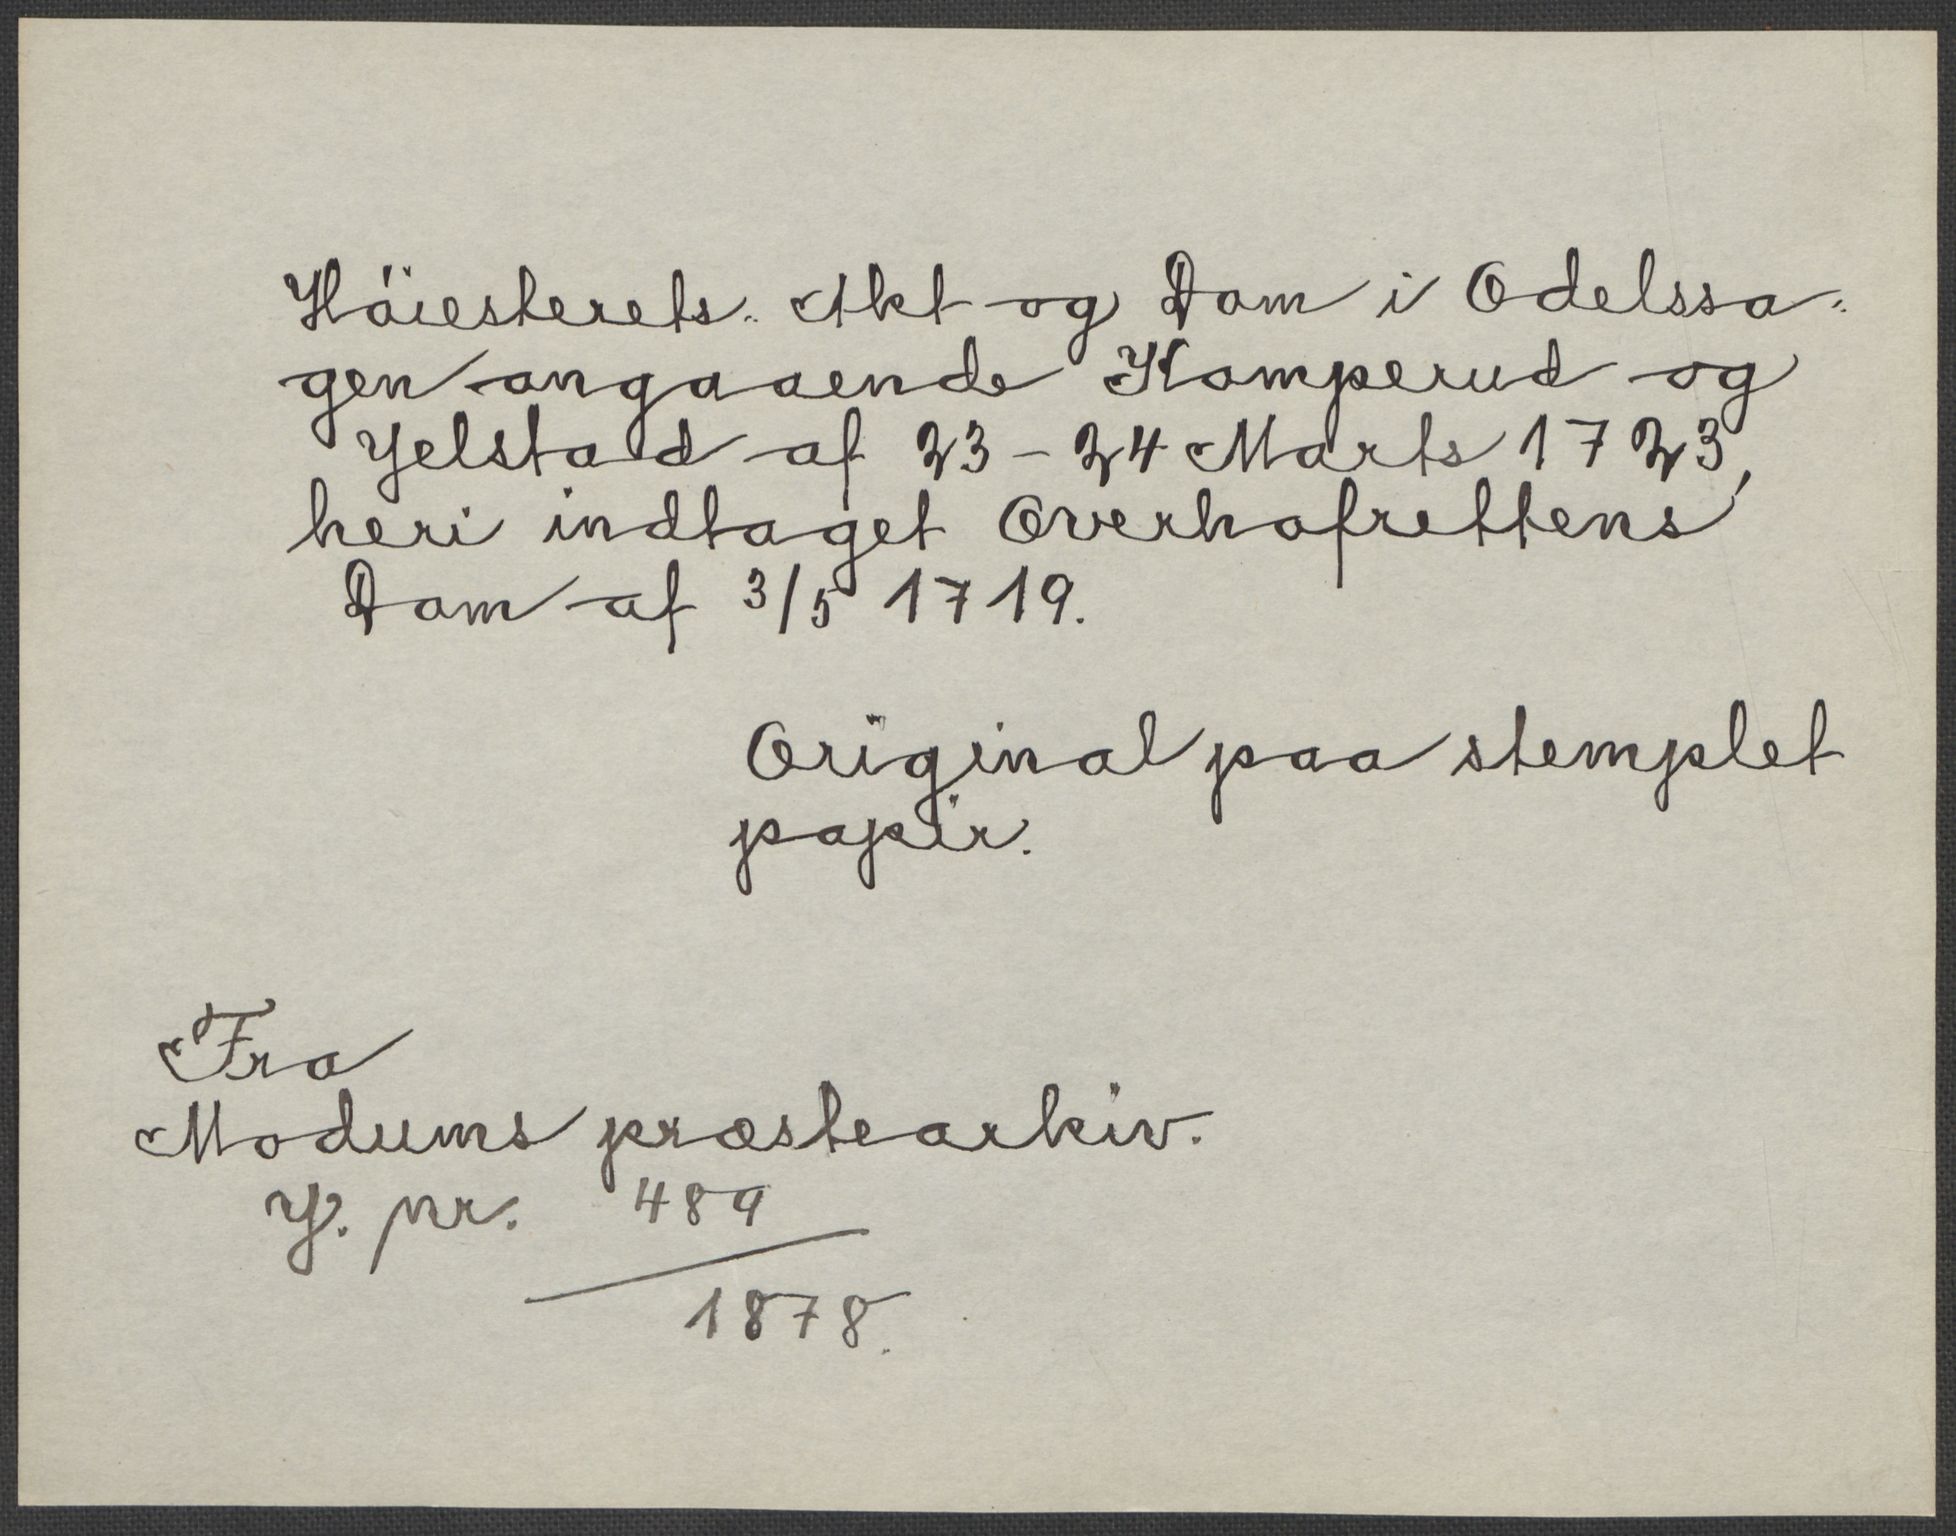 Höiesterets. Akt og Dom i Odelssa-
gen angaaende Komperud og
Gelstad af 23-24 Marts 1723,
heri indtaget Overhofrettens
Dom af 3/5 1719.
Original paa stemplet
papir.
Fra
Modums præstearkiv.
J. nr. 489
1878.